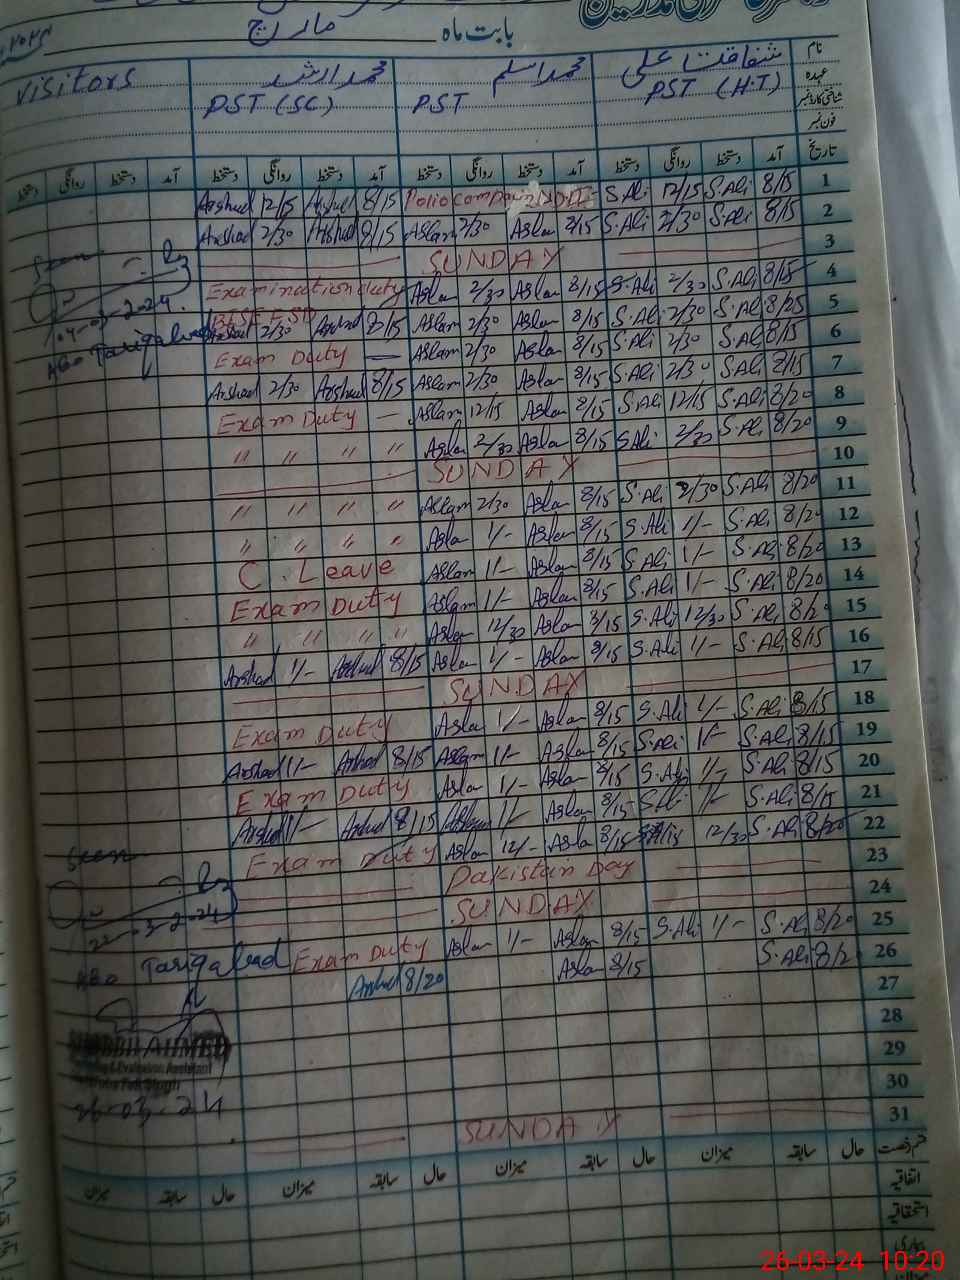 بابت ماہ مارچ
نام شفاقت علی محمد اسلم محمد ارشد visitors
عہدہ PST (H.T) PST PST (SC)
شناختی کارڈ نمبر
فون نمبر
تاریخ آمد دستخط روانگی دستخط آمد دستخط روانگی دستخط آمد دستخط روانگی دستخط آمد دستخط روانگی دستخط
Arshad 12/15 Arshad 8/15 S.Ali 12/15 S.Ali 8/15 1
Arshad 2/30 Arshad 8/15 Aslam 2/30 Aslam 8/15 S.Ali 2/30 S.Ali 8/15 2
SUNDAY 3
Seen Examination duty Aslam 2/30 Aslam 8/15 S.Ali 2/30 S.Ali 8/15 4
Arshad 2/30 Arshad 8/15 Aslam 2/30 Aslam 8/15 S.Ali 2/30 S.Ali 8/25 5
Exam Duty — Aslam 2/30 Aslam 8/15 S.Ali 2/30 S.Ali 8/15 6
Arshad 2/30 Arshad 8/15 Aslam 2/30 Aslam 8/15 S.Ali 2/30 S.Ali 8/15 7
Exam Duty — Aslam 12/15 Aslam 8/15 S.Ali 12/15 S.Ali 8/20 8
" " " " Aslam 2/30 Aslam 8/15 S.Ali 2/30 S.Ali 8/20 9
SUNDAY 10
" " " " Aslam 2/30 Aslam 8/15 S.Ali 2/30 S.Ali 8/20 11
" " " " Aslam 1/- Aslam 8/15 S.Ali 1/- S.Ali 8/20 12
C. Leave Aslam 1/- Aslam 8/15 S.Ali 1/- S.Ali 8/20 13
Exam Duty Aslam 1/- Aslam 8/15 S.Ali 1/- S.Ali 8/20 14
" " " " Aslam 12/30 Aslam 8/15 S.Ali 12/30 S.Ali 8/20 15
Arshad 1/- Arshad 8/15 Aslam 1/- Aslam 8/15 S.Ali 1/- S.Ali 8/15 16
SUNDAY 17
Exam Duty Aslam 1/- Aslam 8/15 S.Ali 1/- S.Ali 8/15 18
Arshad 1/- Arshad 8/15 Aslam 1/- Aslam 8/15 S.Ali 1/- S.Ali 8/15 19
Exam Duty Aslam 1/- Aslam 8/15 S.Ali 1/- S.Ali 8/15 20
Arshad 1/- Arshad 8/15 Aslam 1/- Aslam 8/15 S.Ali 1/- S.Ali 8/15 21
Seen Exam Duty Aslam 12/- Aslam 8/15 12/30 S.Ali 8/20 22
Pakistan Day 23
SUNDAY 24
Exam Duty Aslam 1/- Aslam 8/15 S.Ali 1/- S.Ali 8/20 25
Arshad 8/20 Aslam 8/15 S.Ali 8/20 26
27
28
AHMED 29
26-03-24 30
SUNDAY 31
قسم رخصت حال سابقہ میزان حال سابقہ میزان حال سابقہ میزان حال سابقہ میزان
اتفاقیہ
استحقاقیہ
بیماری
26-03-24 10:20